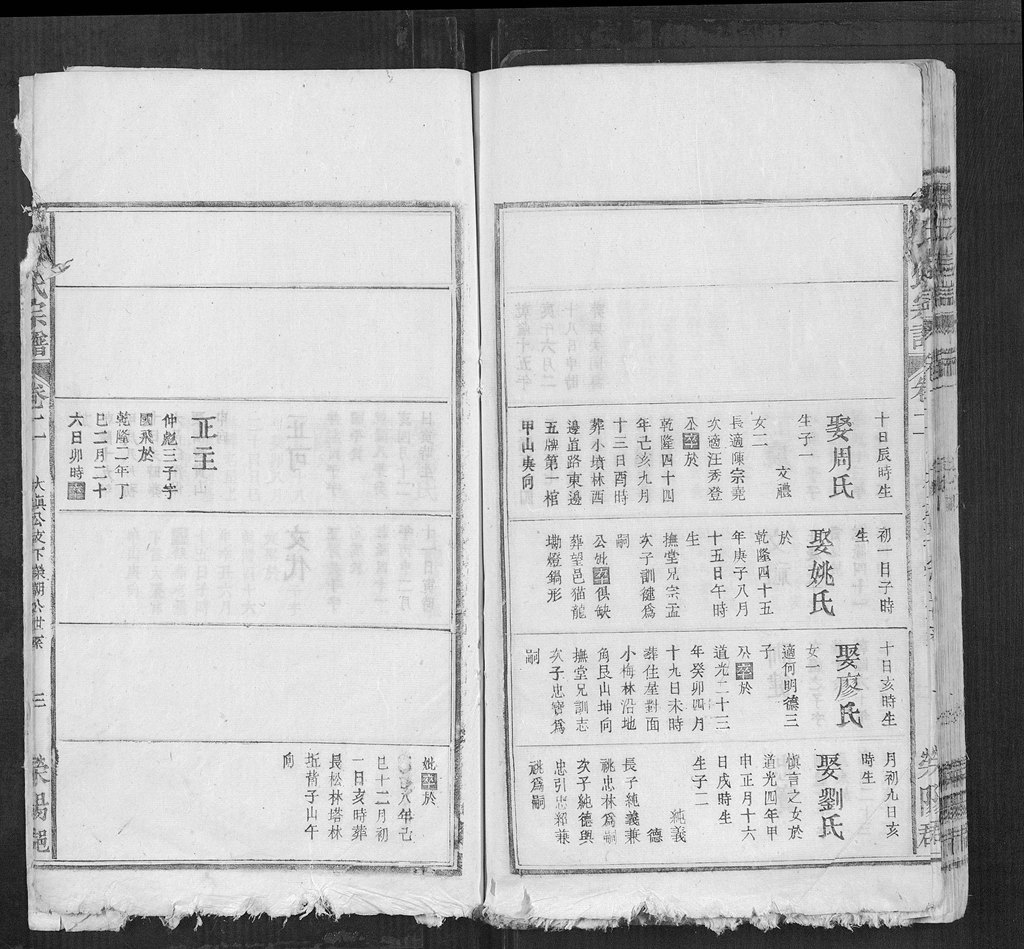 十日辰時生
娶周氏
生子一
文禮
女二
長適陳宗堯
次適汪秀登
公卒於
乾隆四十四
年亡亥九月
十三日酉時
葬小墳林酉
邊直路東邊
五牌第一棺
甲山庚向
初一日子時
生
娶姚氏
於
乾隆四十五
年庚子八月
十五日午時
生
撫堂兄宗孟
次子訓健為
嗣
公妣卒俱缺
葬望邑猫龍
墈燈鍋形
十日亥時生
娶廖氏
女一
適何明德三
子
公卒於
道光二十三
年癸卯四月
十九日未時
葬住屋對面
小梅林沿地
角艮山坤向
撫堂兄訓志
次子忠寶為
嗣
月初九日亥
時生
娶劉氏
慎言之女於
道光四年甲
申正月十六
日戌時生
生子二
純義
德
長子純義兼
祧忠林為嗣
次子純德與
忠引忠郑兼
祧為嗣
正玉
仲彪三子字
國飛於
乾隆二年丁
巳二月二十
六日卯時卒
妣卒於
八年己
巳十二月初
一日亥時葬
長松林塔林
坵背子山午
向
氏宗譜
卷二
三